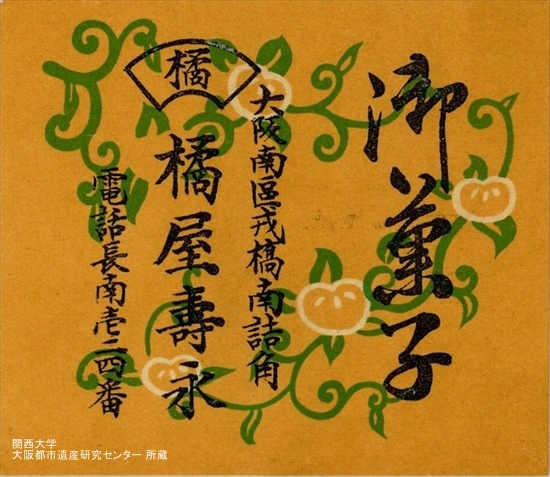 御菓子
大阪南區戎橋南詰角
橘
橘屋壽永
電話長南壱二四番
関西大学
大阪都市遺産研究センター 所蔵